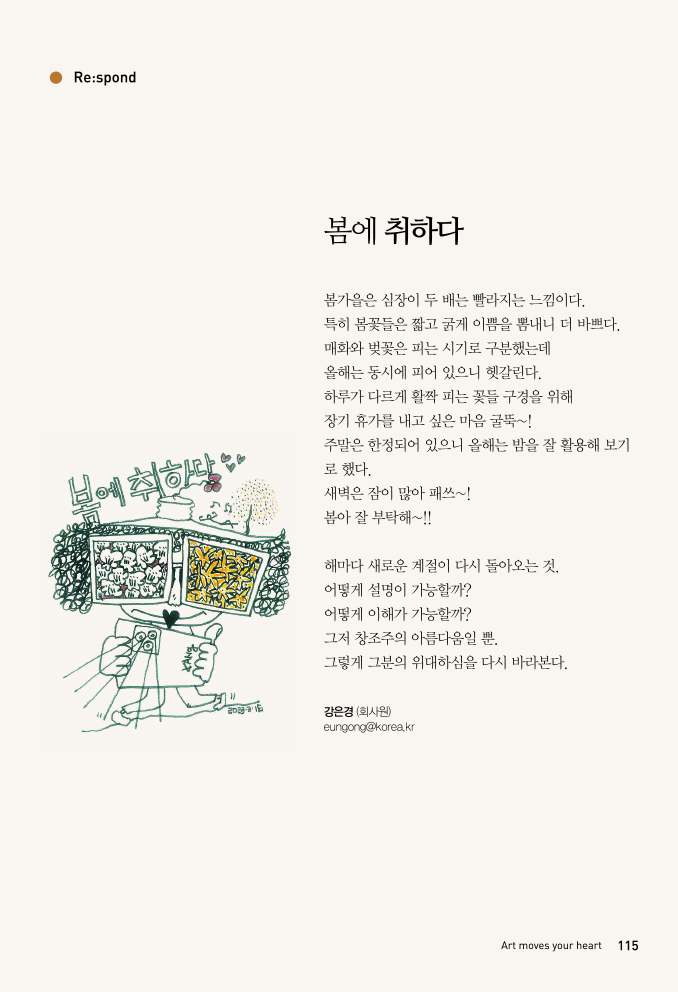 Re:spond
봄에 취하다
봄가을은 심장이 두 배는 빨라지는 느낌이다.
특히 봄꽃들은 짧고 굵게 이쁨을 뽐내니 더 바쁘다.
매화와 벚꽃은 피는 시기로 구분했는데
올해는 동시에 피어 있으니 헷갈린다.
하루가 다르게 활짝 피는 꽃들 구경을 위해
장기 휴가를 내고 싶은 마음 굴뚝~!
주말은 한정되어 있으니 올해는 밤을 잘 활용해 보기
로 했다.
새벽은 잠이 많아 패쓰~!
봄아 잘 부탁해~!!
해마다 새로운 계절이 다시 돌아오는 것.
어떻게 설명이 가능할까?
어떻게 이해가 가능할까?
그저 창조주의 아름다움일 뿐.
그렇게 그분의 위대하심을 다시 바라본다.
강은경 (회사원)
eungong@korea.kr
봄에 취하다
Art moves your heart 115